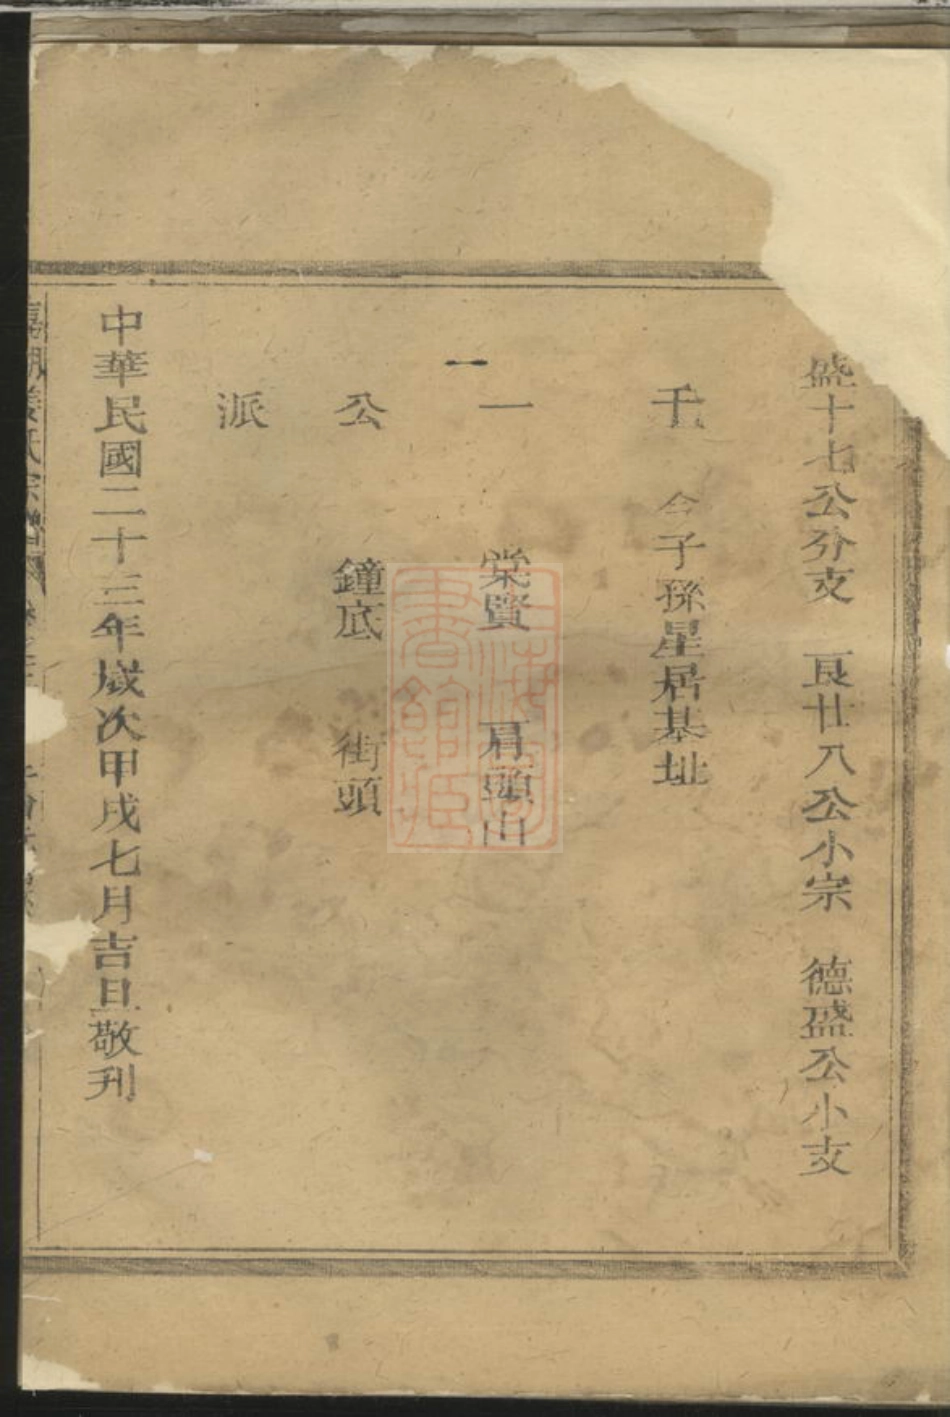 盛十七公分支　艮廿八公小宗　德盛公小支
千　今子孫星居基址
一　棠賢　肩頭山
公　鐘底　街頭
派
中華民國二十三年歲次甲戌七月吉旦敬刊
姜氏宗譜
上海圖書館藏